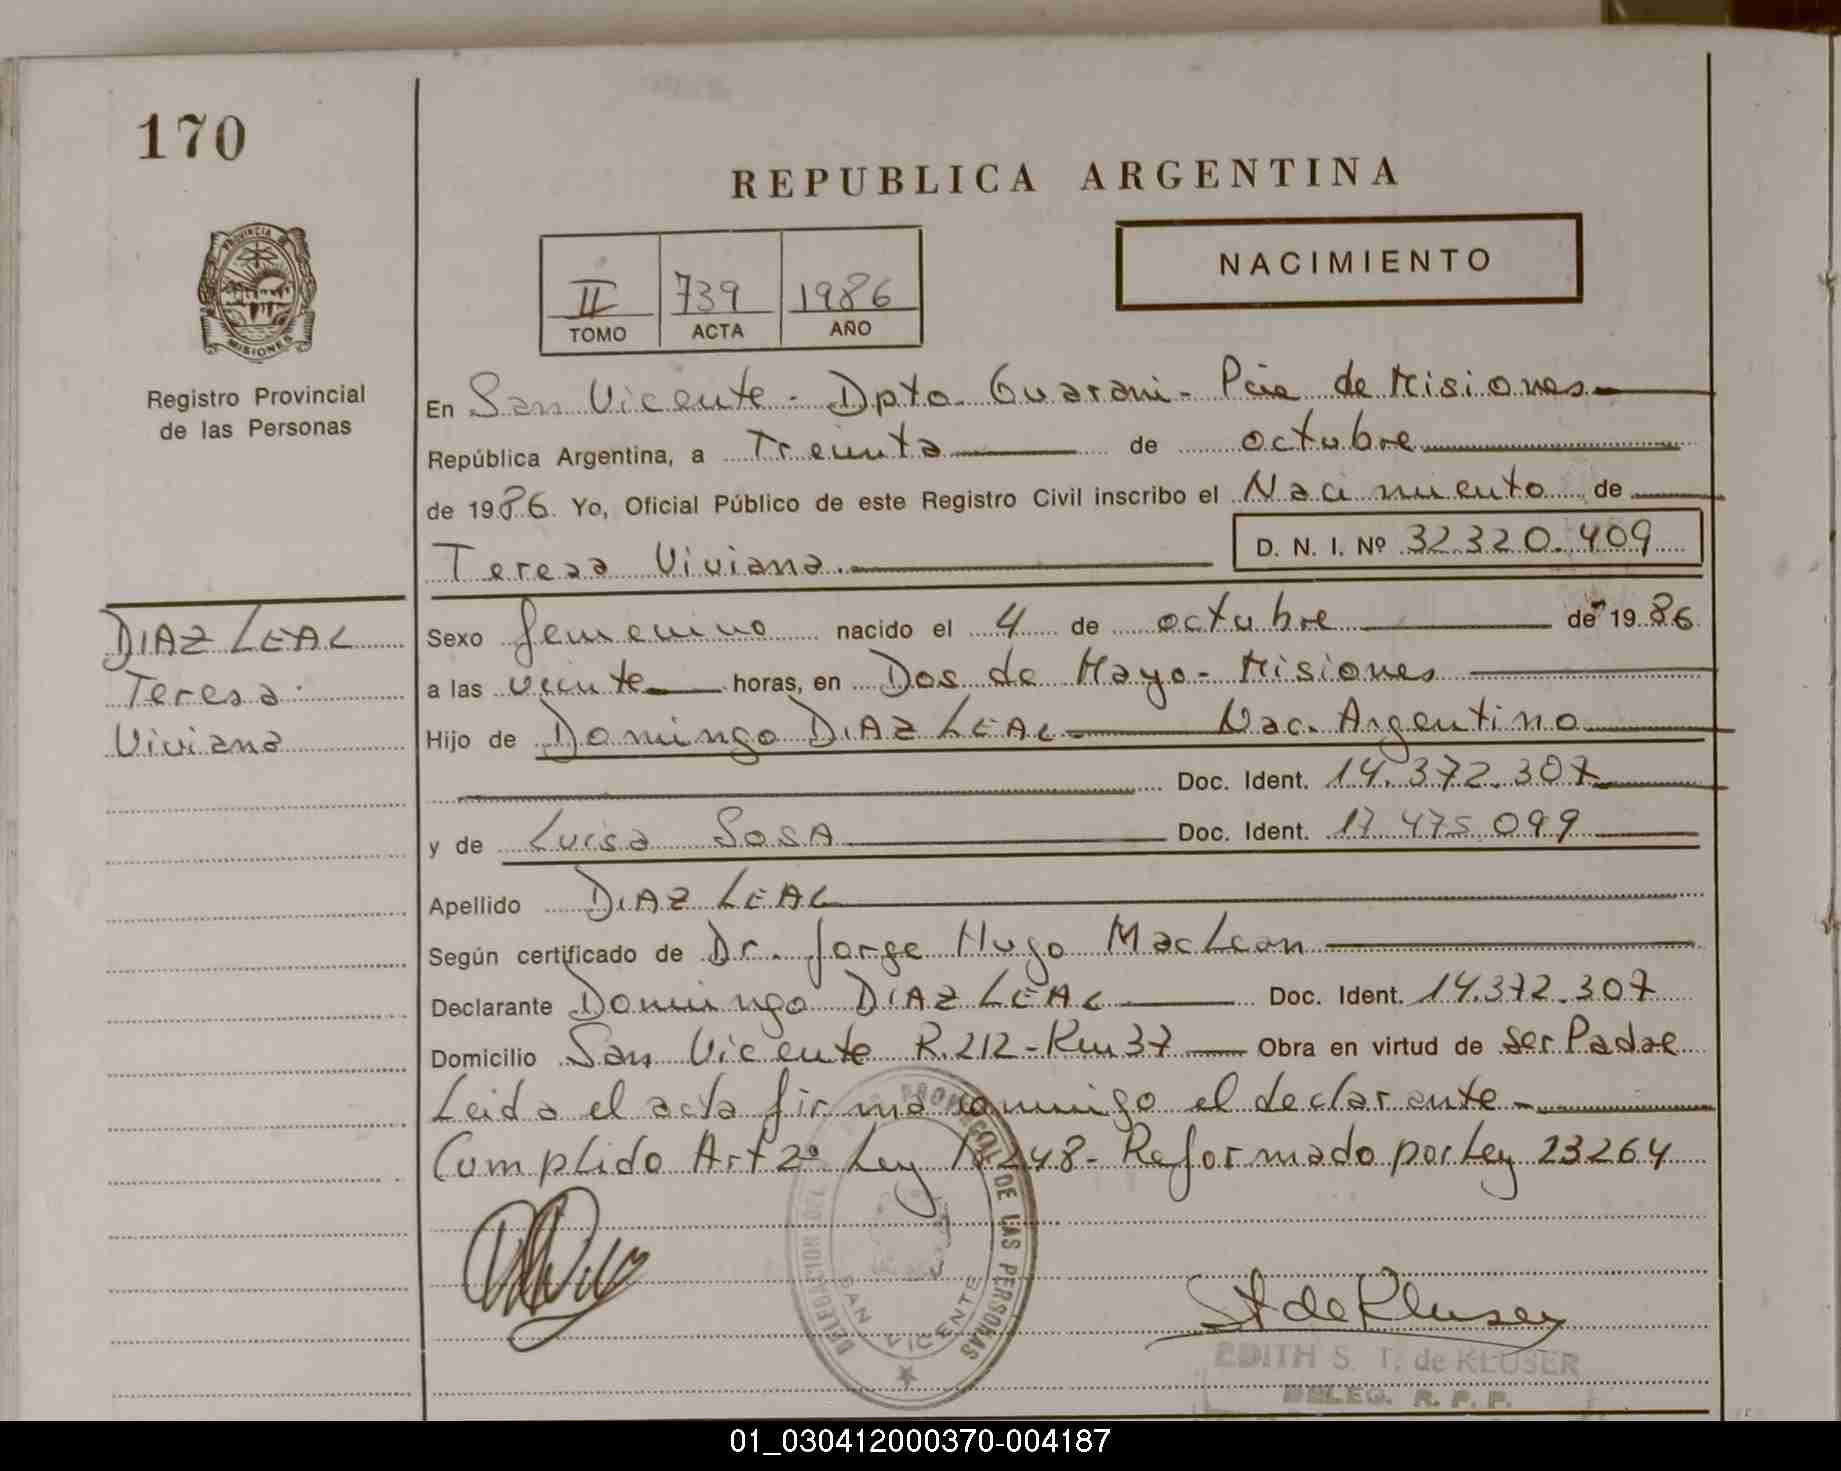 170
REPUBLICA ARGENTINA
NACIMIENTO
II 739 1986
TOMO ACTA AÑO
PROVINCIA DE
MISIONES
Registro Provincial
de las Personas
En San Vicente - Dpto. Guarani - Pcia de Misiones
República Argentina, a Treinta de octubre
de 1986. Yo, Oficial Público de este Registro Civil inscribo el Nacimiento de
Teresa Viviana. D. N. I. Nº 32.320.409
DIAZ LEAL
Teresa
Viviana
Sexo femenino nacido el 4 de octubre de 1986
a las veinte horas, en Dos de Mayo - Misiones
Hijo de Domingo DIAZ LEAL Nac. Argentino
Doc. Ident. 14.372.307
y de Luisa SOSA Doc. Ident. 17.475.099
Apellido DIAZ LEAL
Según certificado de Dr. Jorge Hugo MacLean
Declarante Domingo DIAZ LEAL Doc. Ident. 14.372.307
Domicilio San Vicente R.212-Km 37 Obra en virtud de ser Padre
Leida el acta firma conmigo el declarante
Cumplido Art 2º Ley 18248 - Reformado por Ley 23264
DELEGACION DEL REGISTRO PROVINCIAL DE LAS PERSONAS
SAN VICENTE
St de Kluser
EDITH S. T. de KLUSER
DELEG. R. P. P.
01_030412000370-004187